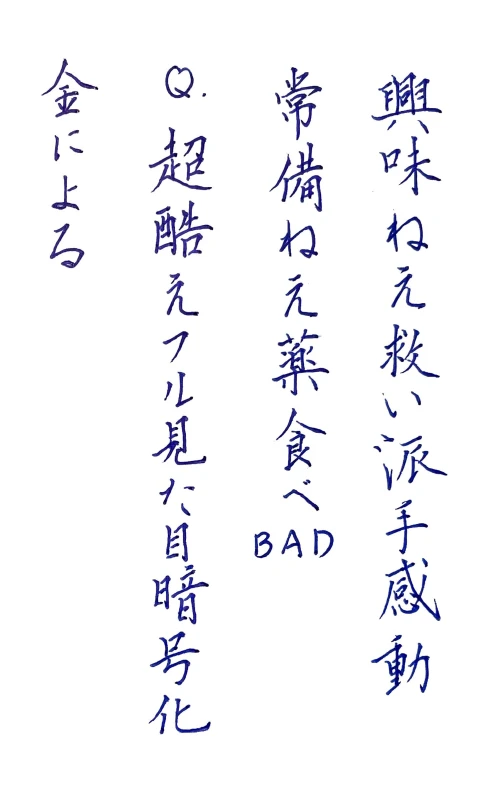 興味ねえ救い派手感動
常備ねえ薬食べBAD
Q.超酷えフル見た目暗号化
金による